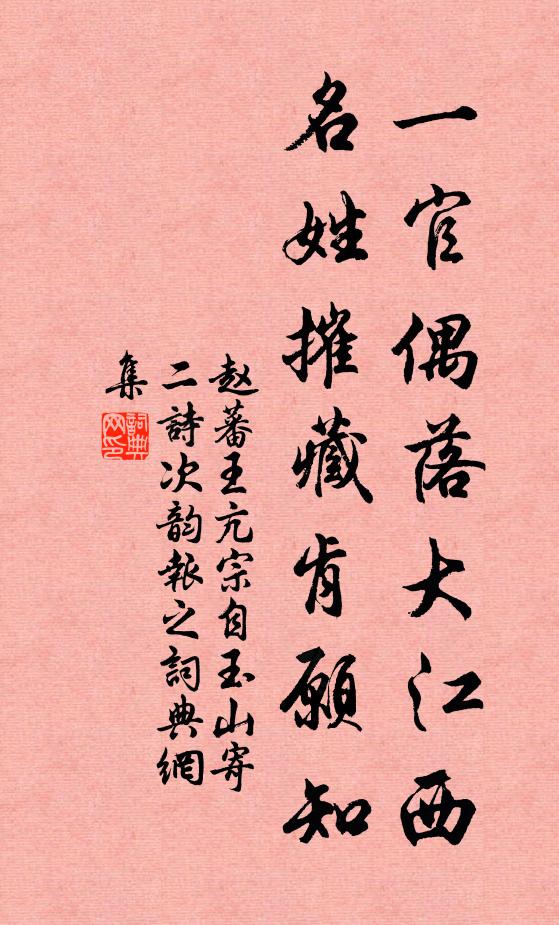 一官偶落大江西
名姓摧藏肯願知
赵蕃王亢宗自玉山寄
二詩次韵報之詞典網
集
詞典
网印